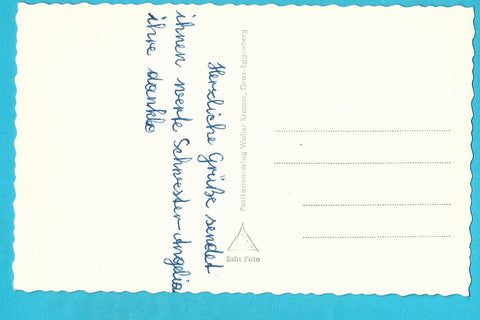 Herzliche Grüße sendet
ihnen werte Schwester Angelia
ihre dankb
Postkartenverlag Walter Kramer, Graz-Eggenberg
Echt Foto